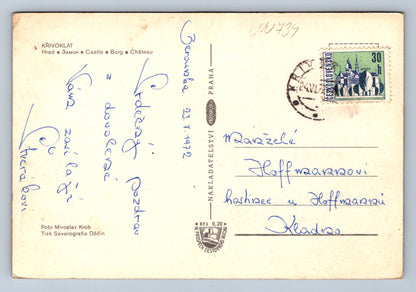 KŘIVOKLÁT
Hrad • Замок • Castle • Burg • Château
UN 734
Berounka 23.7.1972
Srdečný pozdrav
z dovolené
Vám zasílají
Foto Miroslav Krob
Tisk Severografia Děčín
NAKLADATELSTVÍ PRAHA
Kčs 0,20
30 h
ČESKOSLOVENSKO
KŘIV
Manželé
Hoffmannovi
hostinec u Hoffmannů
Kladno